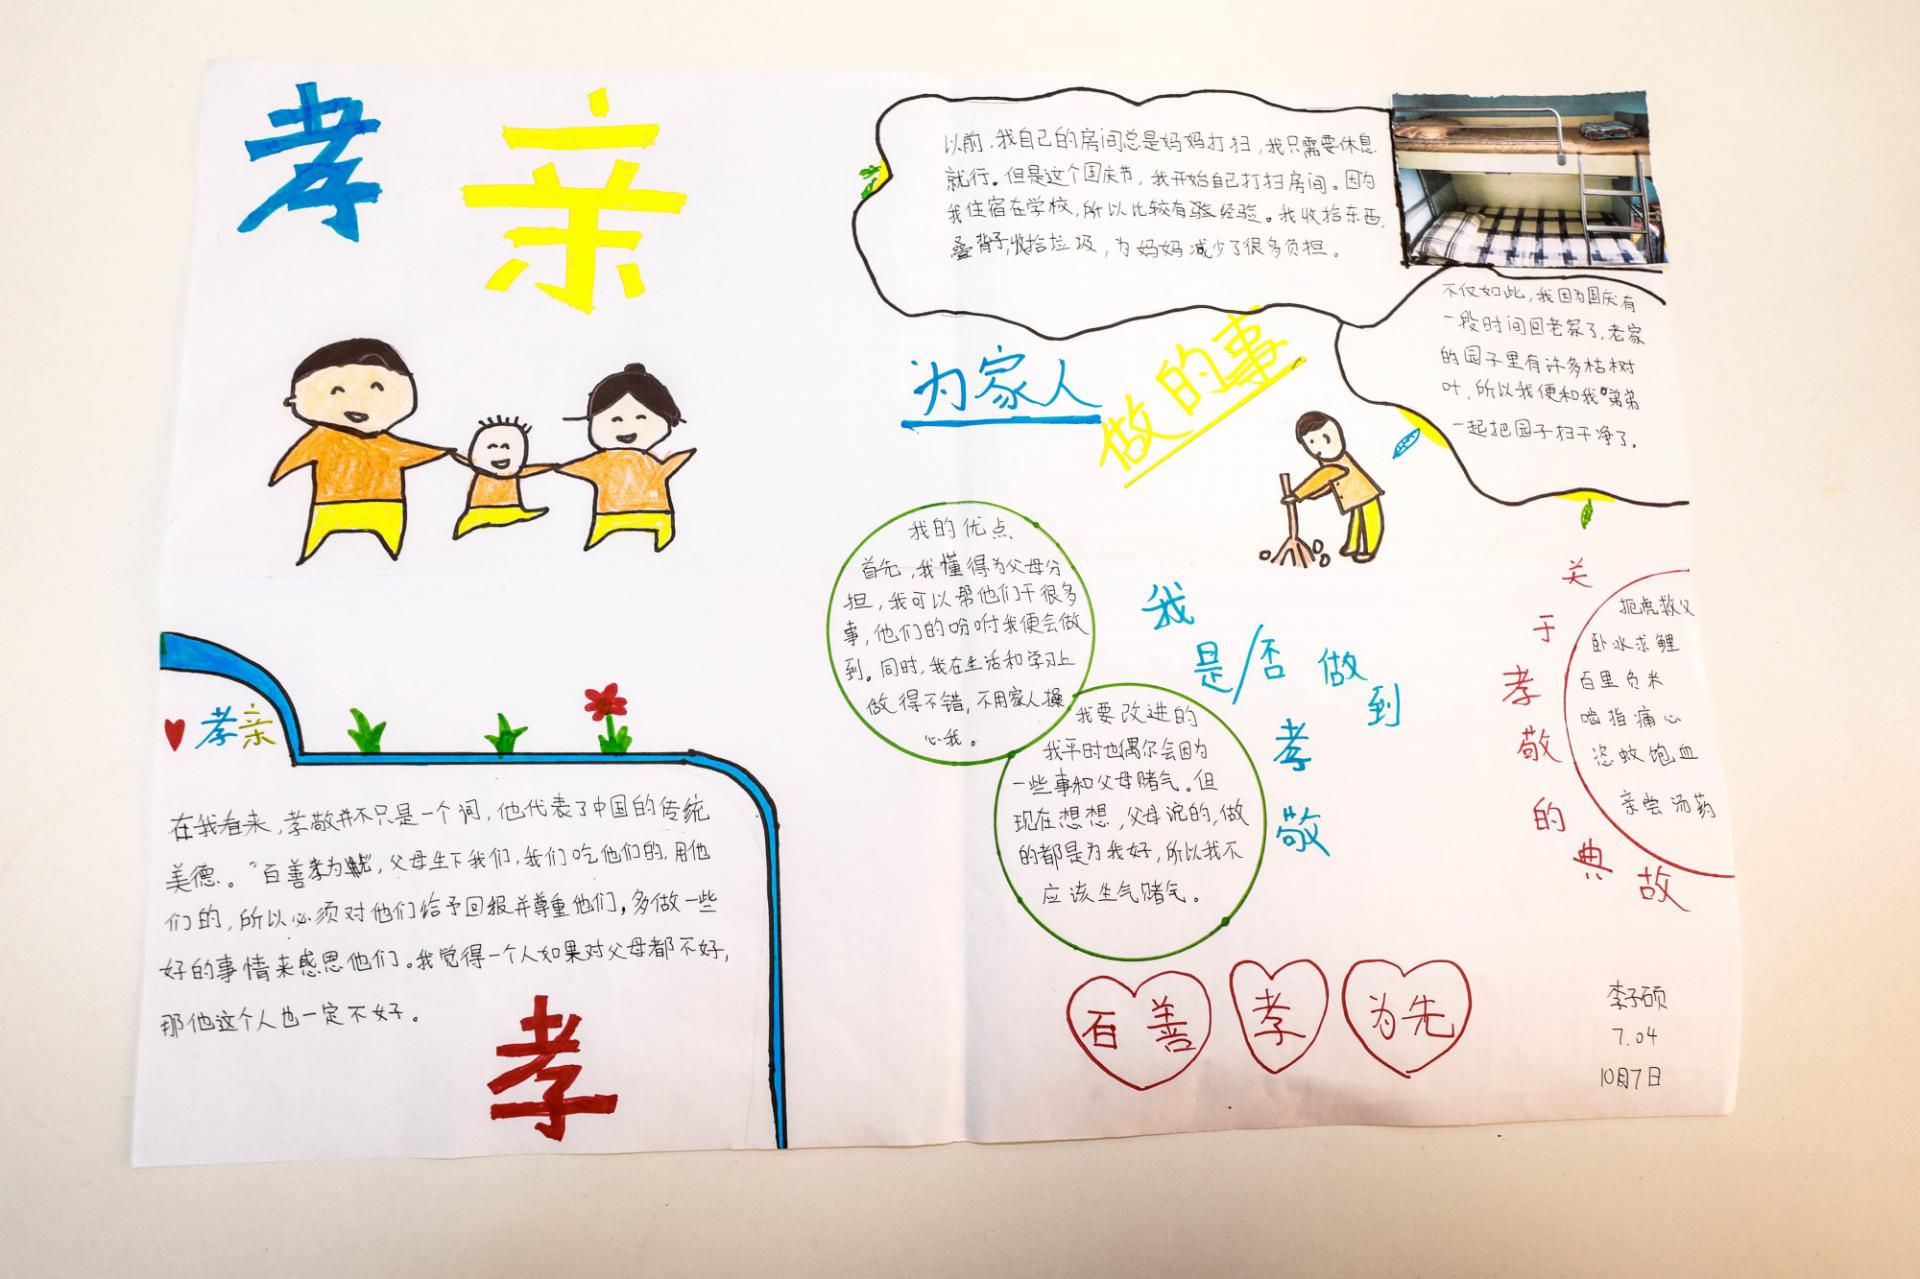 孝亲
以前,我自己的房间总是妈妈打扫,我只需要休息
就行。但是这个国庆节,我开始自己打扫房间。因为
我住宿在学校,所以比较有验经验。我收拾东西,
叠背子,收拾垃圾,为妈妈减少了很多负担。
不仅如此,我因为国庆有
一段时间回老家了,老家
的园子里有许多枯树
叶,所以我便和我弟弟
一起把园子扫干净了。
为家人做的事
我的优点
首先,我懂得为父母分
担,我可以帮他们干很多
事,他们的吩咐我便会做
到。同时,我在生活和学习上
做得不错,不用家人操
心我。
我要改进的
我平时也偶尔会因为
一些事和父母赌气。但
现在想想,父母说的,做
的都是为我好,所以我不
应该生气赌气。
我是/否做到孝敬
关于孝敬的典故
扼虎救父
卧冰求鲤
百里负米
啮指痛心
恣蚊饱血
亲尝汤药
孝亲
在我看来,孝敬并不只是一个词,他代表了中国的传统
美德。“百善孝为”,父母生下我们,我们吃他们的,用他
们的,所以必须对他们给予回报并尊重他们,多做一些
好的事情来感恩他们。我觉得一个人如果对父母都不好,
那他这个人也一定不好。
孝
百善孝为先
李子硕
7.04
10月7日